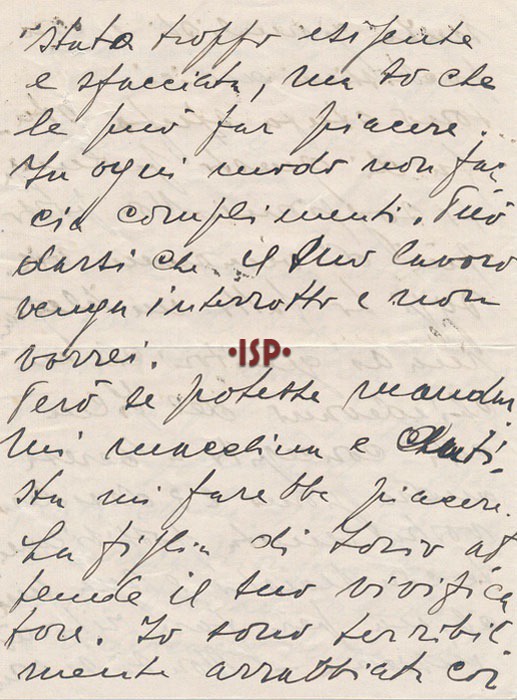 stata troppo esigente
e sfacciata, ma so che
le può far piacere.
In ogni modo non fac
cia complimenti. Può
darsi che il suo lavoro
venga interrotto e non
vorrei.
•ISP•
Però se potesse mandar
mi macchina e
sta mi farebbe piacere.
La figlia di Iorio at
tende il suo vivifica
tore. Io sono terribil
mente arrabbiata coi